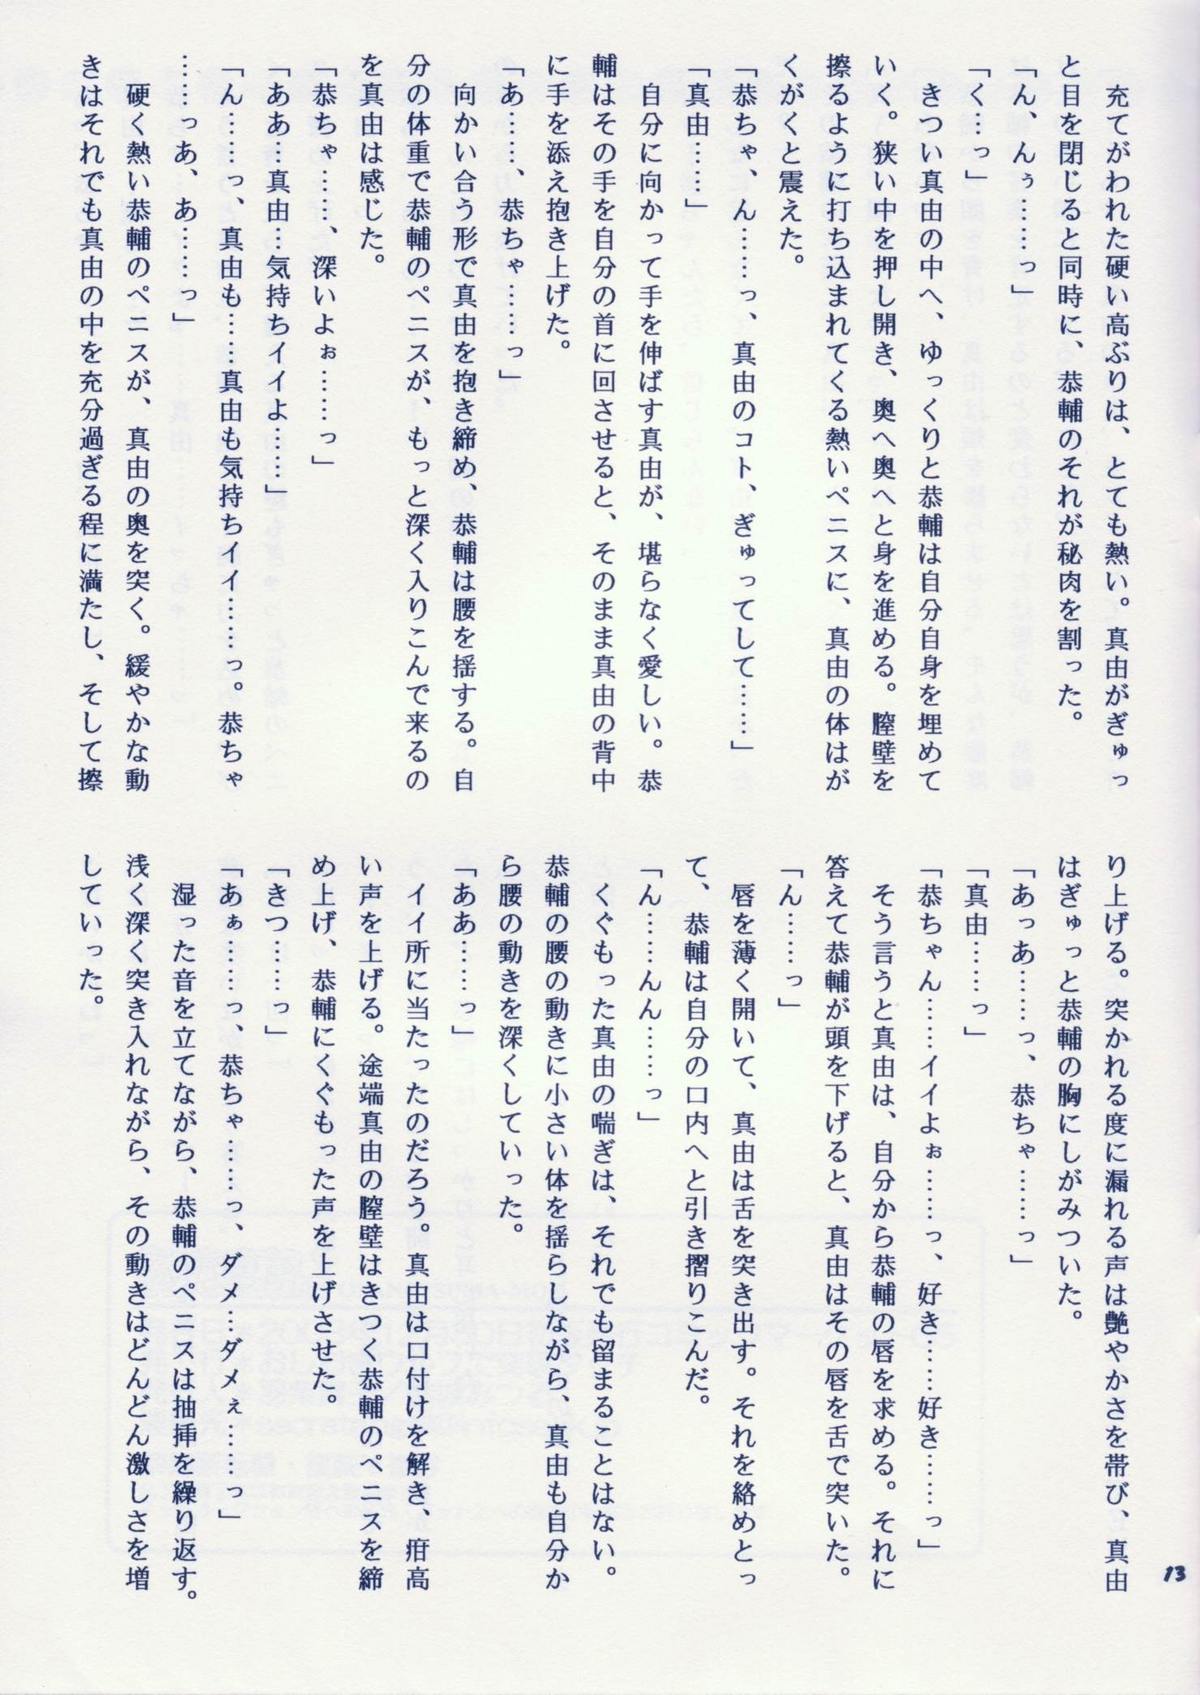 充てがわれた硬い高ぶりは、とても熱い。真由がぎゅっ
と目を閉じると同時に、恭輔のそれが秘肉を割った。
「ん、んぅ……っ」
「く…っ」
きつい真由の中へ、ゆっくりと恭輔は自分自身を埋めて
いく。狭い中を押し開き、奥へ奥へと身を進める。膣壁を
擦るように打ち込まれてくる熱いペニスに、真由の体はが
くがくと震えた。
「恭ちゃ、ん……っ、真由のコト、ぎゅってして……」
「真由……」
自分に向かって手を伸ばす真由が、堪らなく愛しい。恭
輔はその手を自分の首に回させると、そのまま真由の背中
に手を添え抱き上げた。
「あ……、恭ちゃ……っ」
向かい合う形で真由を抱き締め、恭輔は腰を揺する。自
分の体重で恭輔のペニスが、もっと深く入りこんで来るの
を真由は感じた。
「恭ちゃ…、深いよぉ……っ」
「ああ、真由…気持ちイイよ……」
「ん……っ、真由も……真由も気持ちイイ……っ。恭ちゃ
……っあ、あ……っ」
硬く熱い恭輔のペニスが、真由の奥を突く。緩やかな動
きはそれでも真由の中を充分過ぎる程に満たし、そして擦
り上げる。突かれる度に漏れる声は艶やかさを帯び、真由
はぎゅっと恭輔の胸にしがみついた。
「あっあ……っ、恭ちゃ……っ」
「真由……っ」
「恭ちゃん……イイよぉ……っ、好き……好き……っ」
そう言うと真由は、自分から恭輔の唇を求める。それに
答えて恭輔が頭を下げると、真由はその唇を舌で突いた。
「ん……っ」
唇を薄く開いて、真由は舌を突き出す。それを絡めとっ
て、恭輔は自分の口内へと引き摺りこんだ。
「ん……んん……っ」
くぐもった真由の喘ぎは、それでも留まることはない。
恭輔の腰の動きに小さい体を揺らしながら、真由も自分か
ら腰の動きを深くしていった。
「ああ……っ」
イイ所に当たったのだろう。真由は口付けを解き、疳高
い声を上げる。途端真由の膣壁はきつく恭輔のペニスを締
め上げ、恭輔にくぐもった声を上げさせた。
「きつ……っ」
「あぁ……っ、恭ちゃ……っ、ダメ…ダメぇ……っ」
湿った音を立てながら、恭輔のペニスは抽挿を繰り返す。
浅く深く突き入れながら、その動きはどんどん激しさを増
していった。
13